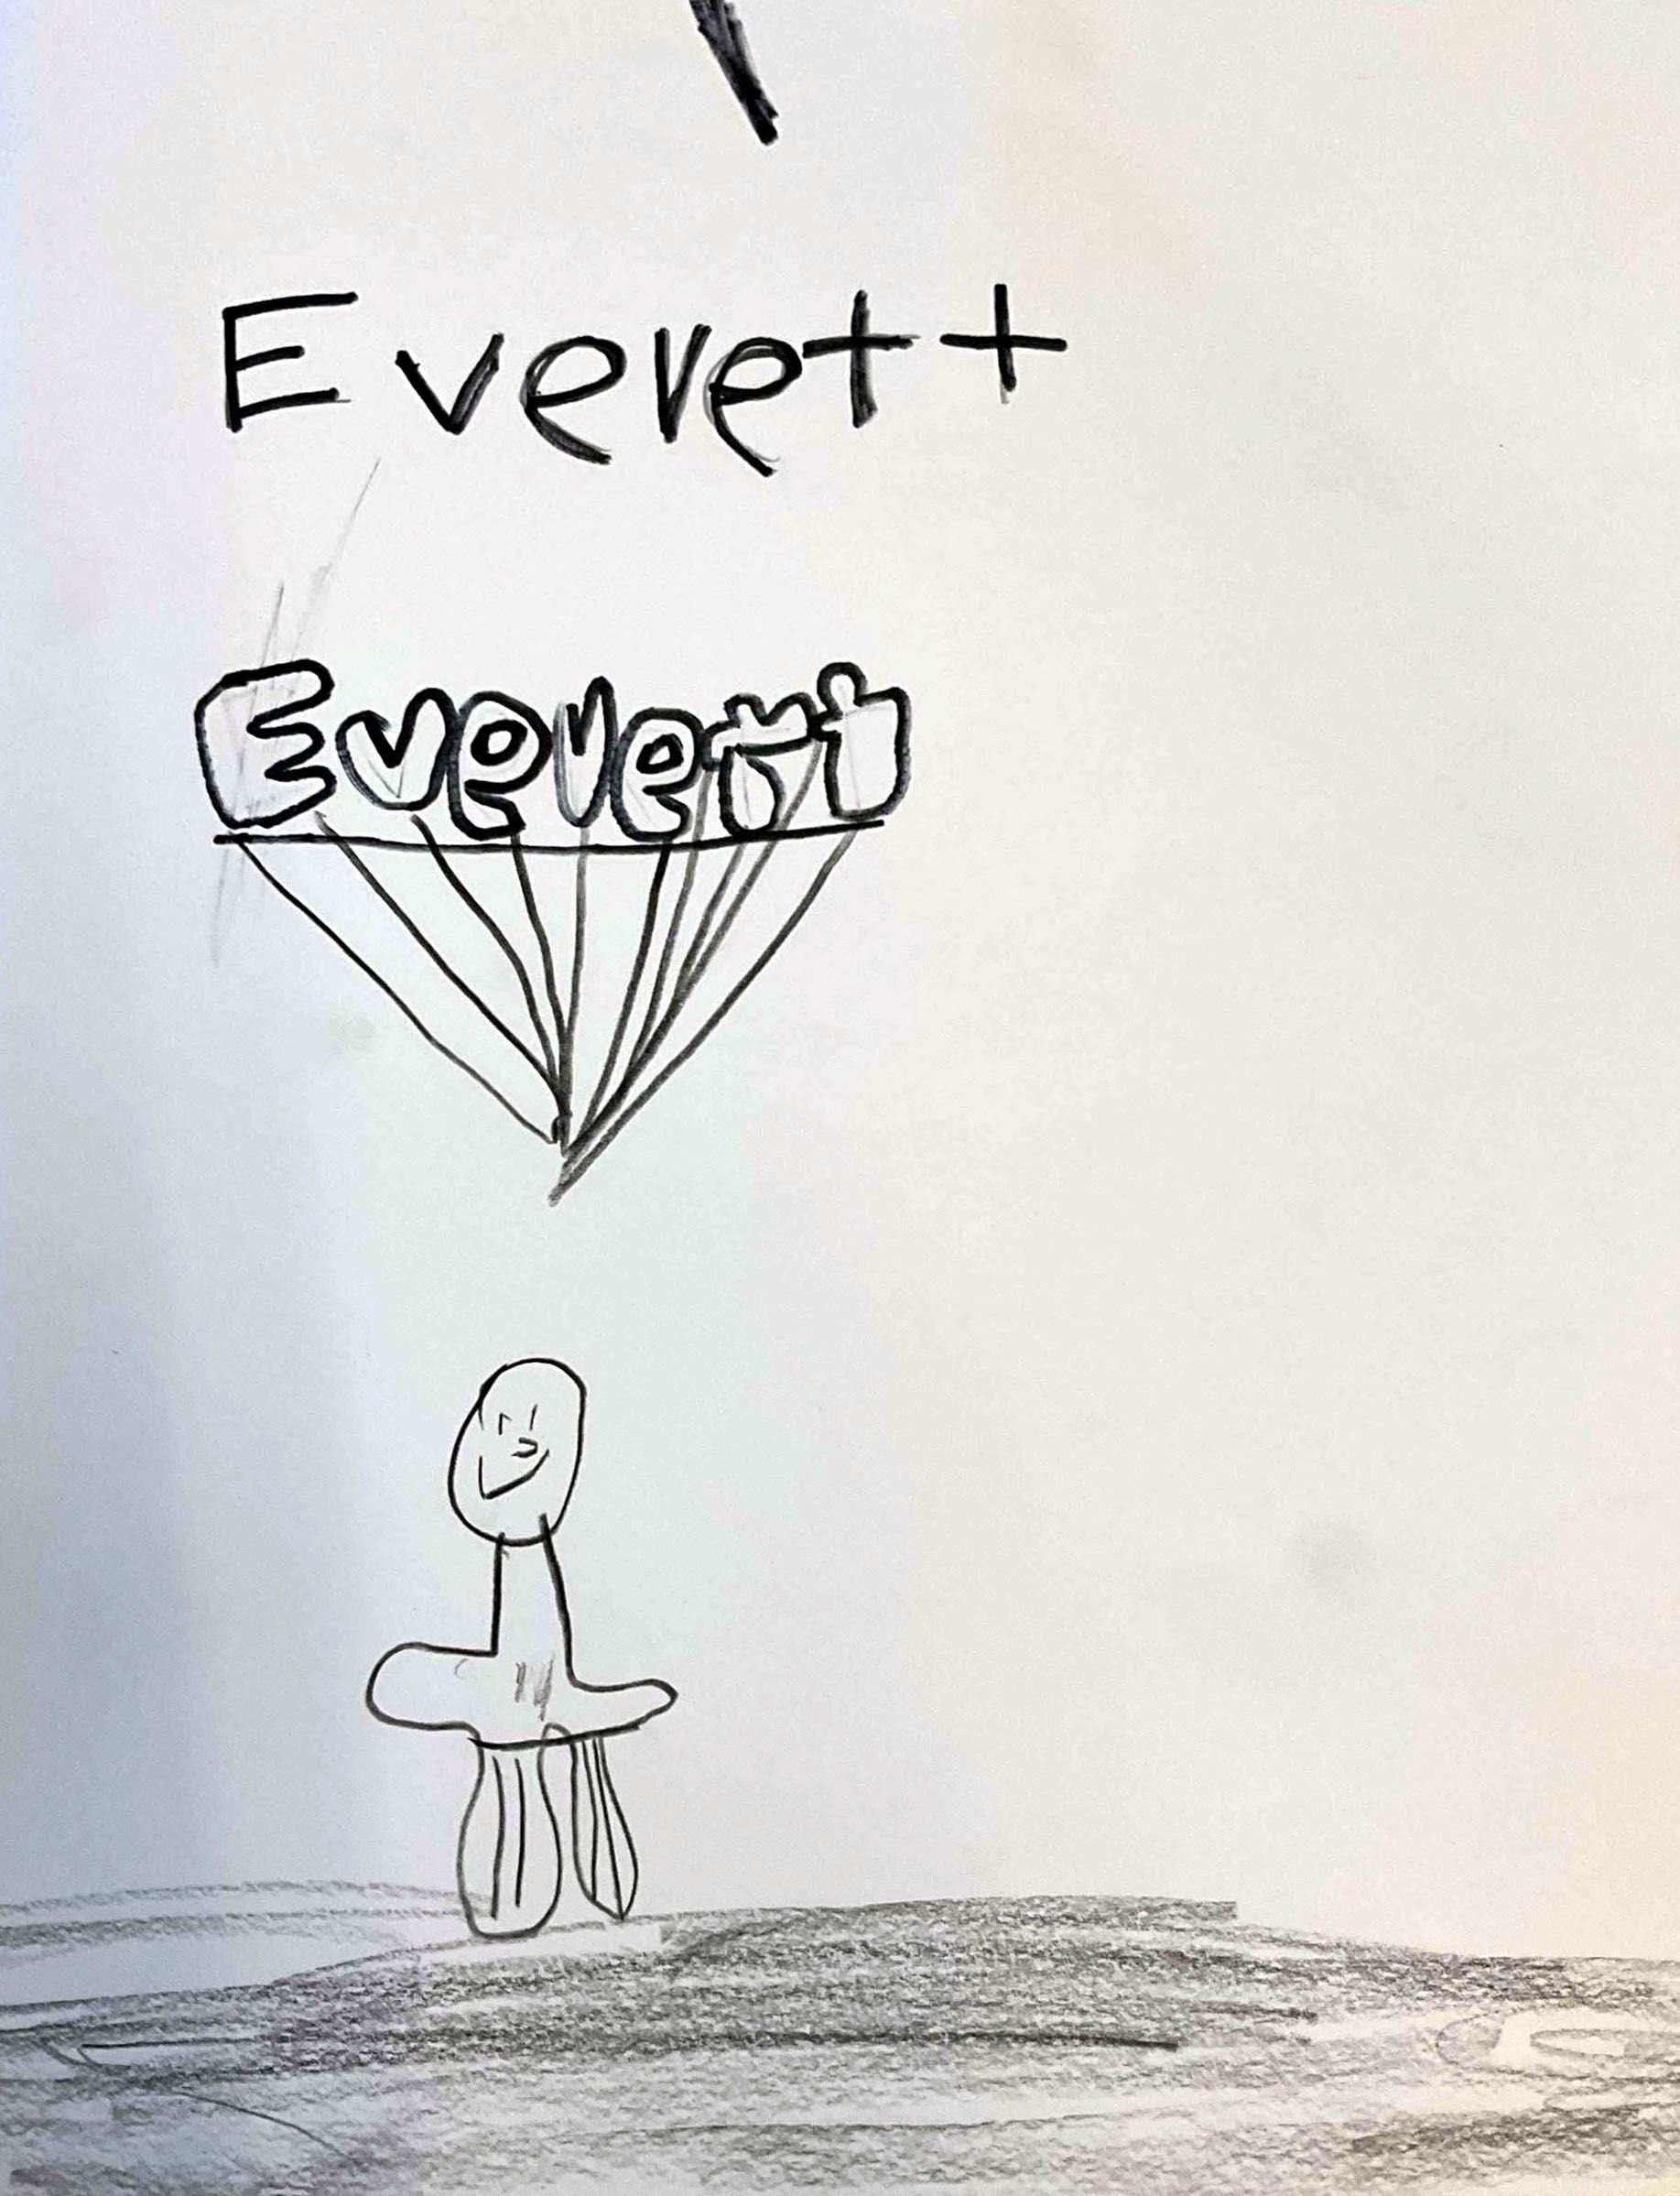 Everett
Everett